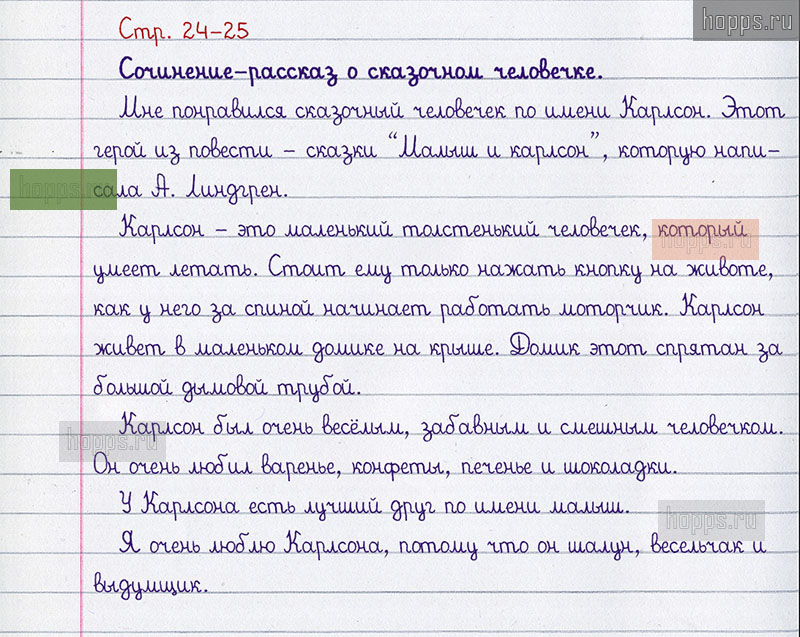 hopps.ru
Стр. 24-25
Сочинение-рассказ о сказочном человечке.
Мне понравился сказочный человечек по имени Карлсон. Этот
герой из повести - сказки "Малыш и карлсон", которую напи-
hopps.ru
сала А. Линдгрен.
Карлсон - это маленький толстенький человечек, который
hopps.ru
умеет летать. Стоит ему только нажать кнопку на животе,
как у него за спиной начинает работать моторчик. Карлсон
живет в маленьком домике на крыше. Домик этот спрятан за
большой дымовой трубой.
Карлсон был очень весёлым, забавным и смешным человечком.
hopps.ru
Он очень любил варенье, конфеты, печенье и шоколадки.
У Карлсона есть лучший друг по имени малыш.
hopps.ru
Я очень люблю Карлсона, потому что он шалун, весельчак и
выдумщик.